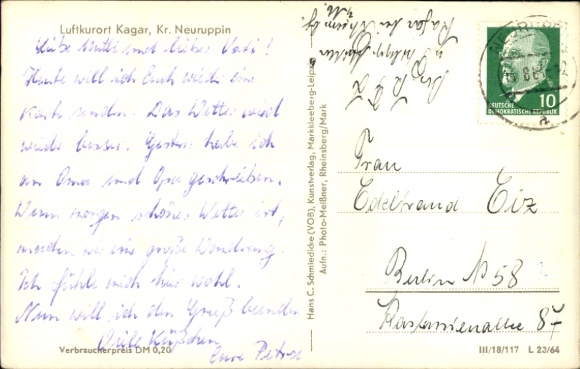 Luftkurort Kagar, Kr. Neuruppin
Liebe Mutti und lieber Vati!
Heute will ich Euch wieder eine
Karte senden. Das Wetter wird
wieder besser. Gestern habe ich
an Oma und Opa geschrieben.
Wenn morgen schönes Wetter ist,
machen wir eine große Wanderung.
Ich fühle mich hier wohl.
Nun will ich den Gruß beenden
Viele Küßchen
Eure Petra
Verbraucherpreis DM 0,20
Hans C. Schmiedicke (VOB), Kunstverlag, Markkleeberg-Leipzig
Aufn.: Photo-Meißner, Rheinsberg/Mark
Kagar bei Rheinsberg
DEUTSCHE
DEMOKRATISCHE REPUBLIK
10
Frau
Edeltraud Eiz
Berlin N 58
Kastanienallee 87
III/18/117 L 23/64